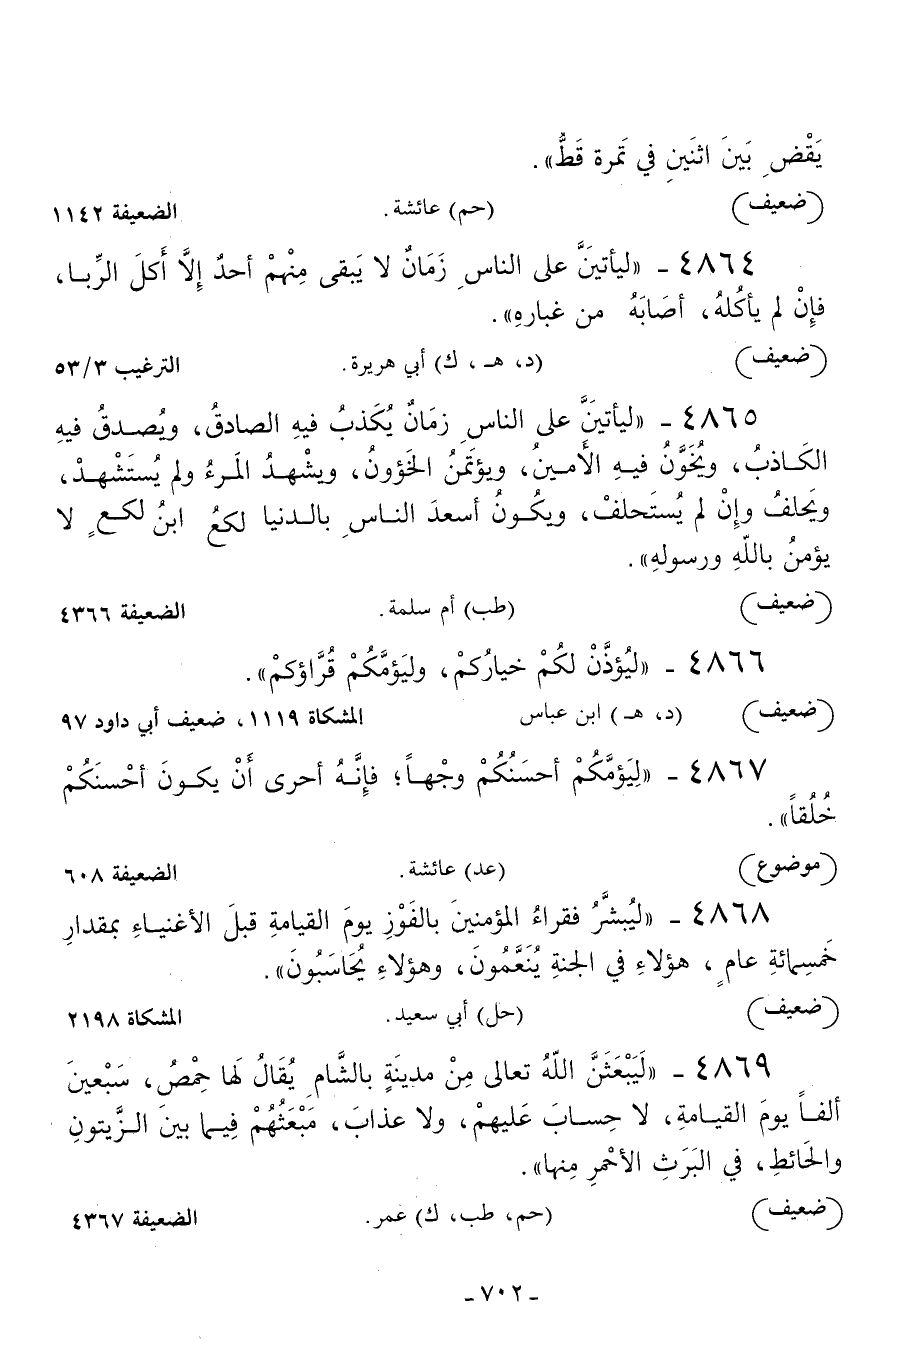 يَقْضِ بَينَ اثنَينِ في تَمرة قَطُّ».
(ضعيف) (حم) عائشة. الضعيفة ١١٤٢
٤٨٦٤ ـ «ليأتينَّ على الناسِ زَمَانٌ لا يَبقى مِنْهمْ أحدٌ إِلَّا أَكلَ الرِّبا،
فإِنْ لم يأكلهُ، أصَابَهُ من غبارهِ».
(ضعيف) (د، هـ، ك) أبي هريرة. الترغيب ٥٣/٣
٤٨٦٥ ـ «ليأتينَّ على الناسِ زمَانٌ يُكَذبُ فيهِ الصادقُ، ويُصدقُ فيهِ
الكَاذبُ، ويُخَوَّنُ فيهِ الأَمينُ، ويؤتَمنُ الخَؤونُ، ويشْهدُ المَرءُ ولم يُستَشْهدْ،
ويَحلفُ وإِنْ لم يُستَحلفْ، ويكُونُ أسعدَ الناسِ بالدنيا لكعُ ابنُ لكعٍ لا
يؤمنُ باللّهِ ورسولهِ».
(ضعيف) (طب) أم سلمة. الضعيفة ٤٣٦٦
٤٨٦٦ ـ «ليُؤذَّنْ لكُمْ خيارُكمْ، وليَؤمَّكُمْ قُرَّاؤكمْ».
(ضعيف) (د، هـ) ابن عباس المشكاة ١١١٩، ضعيف أبي داود ٩٧
٤٨٦٧ ـ «لِيَؤمَّكُمْ أحسَنُكُمْ وجْهاً؛ فإِنَّهُ أحرى أَنْ يكونَ أحْسنَكُمْ
خُلُقاً».
(موضوع) (عد) عائشة. الضعيفة ٦٠٨
٤٨٦٨ ـ «ليُبشَّرُ فقراءُ المؤمنينَ بالفَوْزِ يومَ القيامةِ قبلَ الأغنياءِ بمقدارِ
خَمسِمائةِ عامٍ، هؤلاءِ في الجنةِ يُنَعَّمُونَ، وهؤلاءِ يُحَاسَبُونَ».
(ضعيف) (حل) أبي سعيد. المشكاة ٢١٩٨
٤٨٦٩ ـ «لَيَبْعَثَنَّ اللّهُ تعالى مِنْ مدينَةٍ بالشَّامِ يُقَالُ لهَا حِمْصُ، سَبْعينَ
ألفاً يومَ القيامةِ، لا حِسابَ عَليهمْ، ولا عذابَ، مَبْعَثُهُمْ فِيما بينَ الزَّيتونِ
والحَائطِ، في البَرَثِ الأحْمرِ مِنها».
(ضعيف) (حم، طب، ك) عمر. الضعيفة ٤٣٦٧
ـ ٧٠٢ ـ